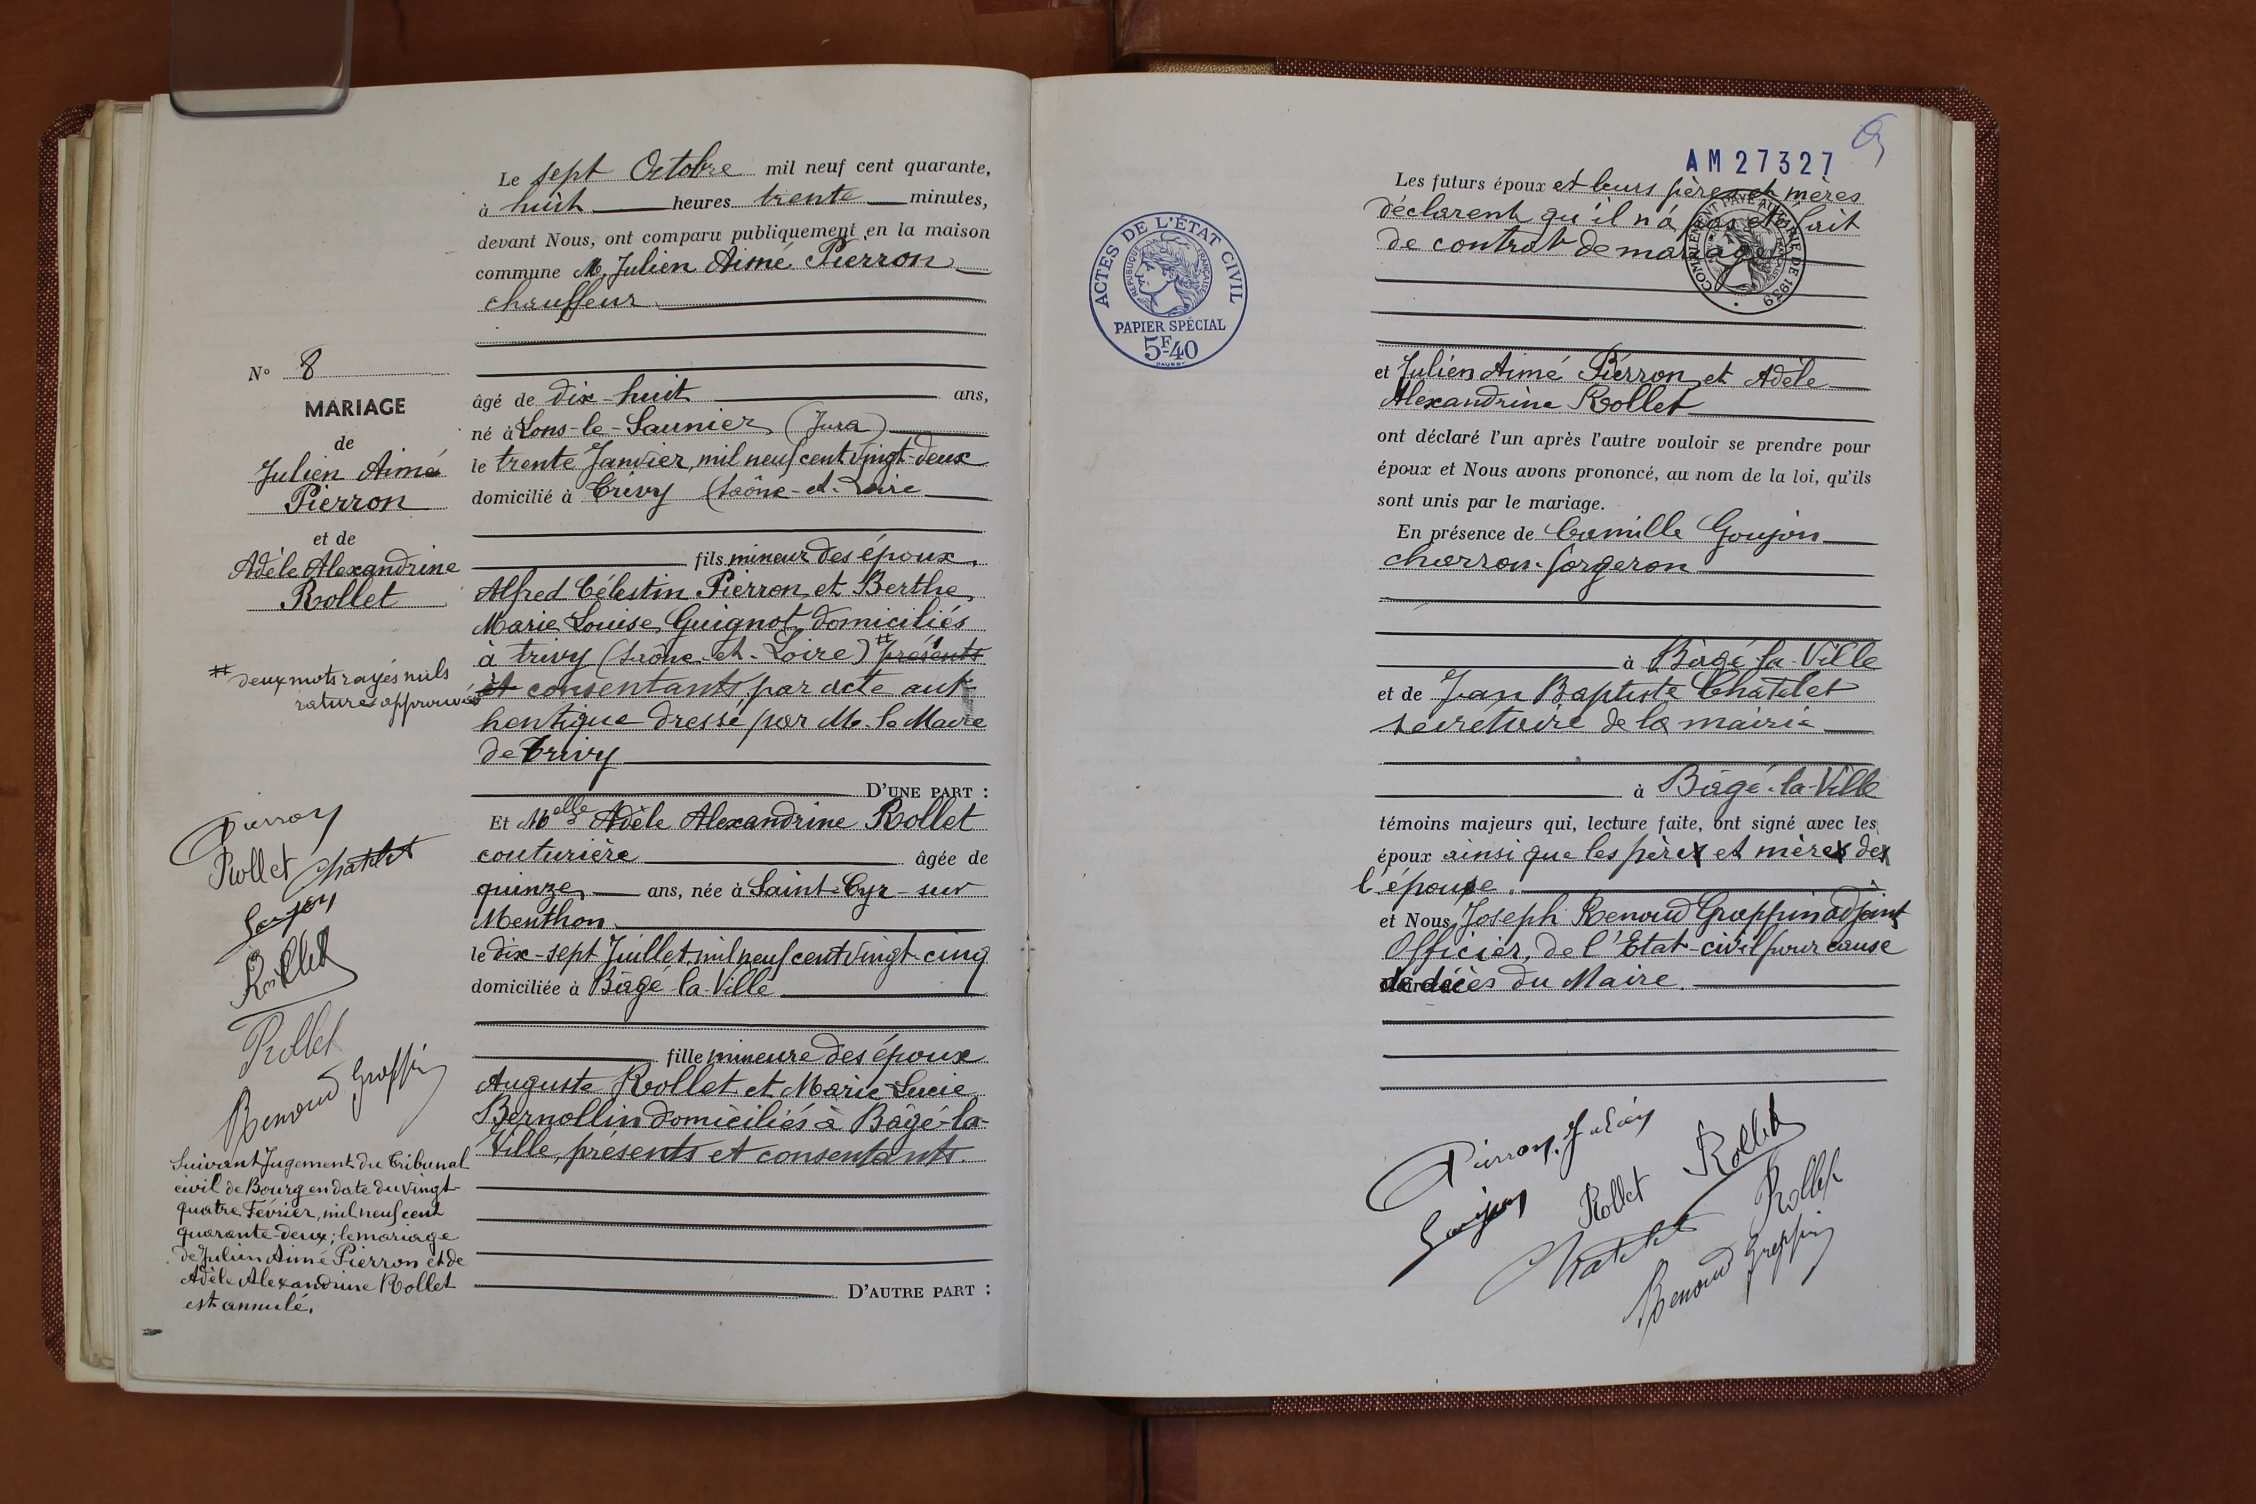 N° 8
MARIAGE
de
Julien Aimé
Pierron
et de
Adèle Alexandrine
Rollet
deux mots rayés nuls
rature approuvée
Pierron
Rollet Chatelet
Goujon
Rollet
Rollet
Renoud Grappin
Suivant Jugement du Tribunal
civil de Bourg en date du vingt-
quatre Février, mil neuf cent
quarante-deux; le mariage
de Julien Aimé Pierron et de
Adèle Alexandrine Rollet
est annulé.
Le sept Octobre mil neuf cent quarante,
à huit heures trente minutes,
devant Nous, ont comparu publiquement en la maison
commune M. Julien Aimé Pierron
chauffeur
âgé de dix-huit ans,
né à Lons-le-Saunier (Jura)
le trente Janvier mil neuf cent vingt-deux
domicilié à Trivy (Saône-et-Loire
fils mineur des époux
Alfred Célestin Pierron et Berthe
Marie Louise Guignot domiciliés
à Trivy (Saône-et-Loire) présents
et consentants par acte aut-
hentique dressé par M. le Maire
de Trivy
D'UNE PART :
Et Melle Adèle Alexandrine Rollet
couturière âgée de
quinze ans, née à Saint-Cyr-sur
Menthon
le dix-sept Juillet mil neuf cent vingt-cinq
domiciliée à Bâgé-la-Ville
fille mineure des époux
Auguste Rollet et Marie Lucie
Bernollin domiciliés à Bâgé-la-
Ville, présents et consentants.
D'AUTRE PART :
ACTES DE L'ÉTAT CIVIL
RÉPUBLIQUE FRANÇAISE
PAPIER SPÉCIAL
5F-40
AM 27327
Les futurs époux et leurs pères et mères
déclarent qu'il n'a pas été fait
de contrat de mariage
COMPLÉMENT PAYÉ AU TIMBRE DE 1939
et Julien Aimé Pierron et Adèle
Alexandrine Rollet
ont déclaré l'un après l'autre vouloir se prendre pour
époux et Nous avons prononcé, au nom de la loi, qu'ils
sont unis par le mariage.
En présence de Camille Goujon
charron-forgeron
à Bâgé-la-Ville
et de Jean Baptiste Chatelet
secrétaire de la mairie
à Bâgé-la-Ville
témoins majeurs qui, lecture faite, ont signé avec les
époux ainsi que les père et mère de
l'épouse.
et Nous, Joseph Renoud Grappin adjoint
Officier de l'Etat-civil pour cause
de décès du Maire.
Pierron Julien
Goujon Rollet Rollet
Chatelet Rollet
Renoud Grappin